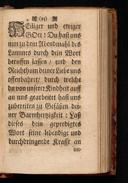 Heiliger und ewiger
GOtt! Du hast uns
nun zu dem Abendmahl des
Lammes durch dein Wort
beruffen lassen / und den
Reichthum deiner Liebe uns
offenbahret / durch welche
du von unserer Kindheit auff
an uns gearbeitet hast uns
zubereiten zu Gefässen dei-
ner Barmhertzigkeit: Laß
dieses dein geprediges
Wort seine lebendige und
durchdringende Krafft an